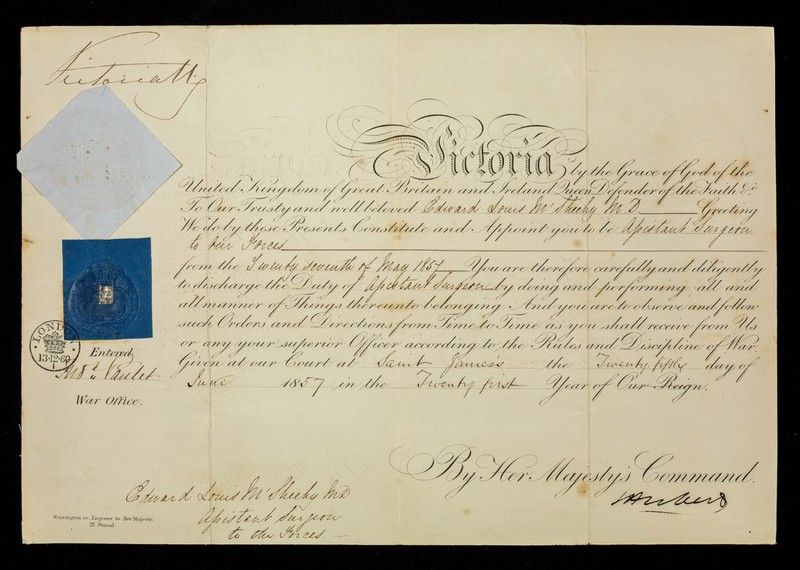 Victoria R
Victoria by the Grace of God of the
United Kingdom of Great Britain and Ireland Queen Defender of the Faith &c
To Our Trusty and well beloved Edward Louis McSheehy M.D. Greeting
We do by these Presents Constitute and Appoint you to be Assistant Surgeon
to Our Forces
from the Twenty seventh of May 1857 You are therefore carefully and diligently
to discharge the Duty of Assistant Surgeon by doing and performing all and
all manner of Things thereunto belonging And you are to observe and follow
such Orders and Directions from Time to Time as you shall receive from Us
or any your superior Officer according to the Rules and Discipline of War
Given at our Court at Saint James's the Twenty fifth day of
June 1857 in the Twenty first Year of Our Reign.
LONDON
13·12·60
1
Entered
War Office.
By Her Majesty's Command.
Edward Louis McSheehy MD
Assistant Surgeon
to the Forces.
Warrington sc. Engraver to Her Majesty.
27, Strand.